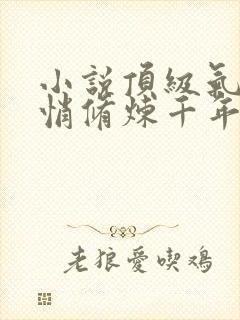 小說頂級氣
悄脩煉千年
老狼愛喫鳮